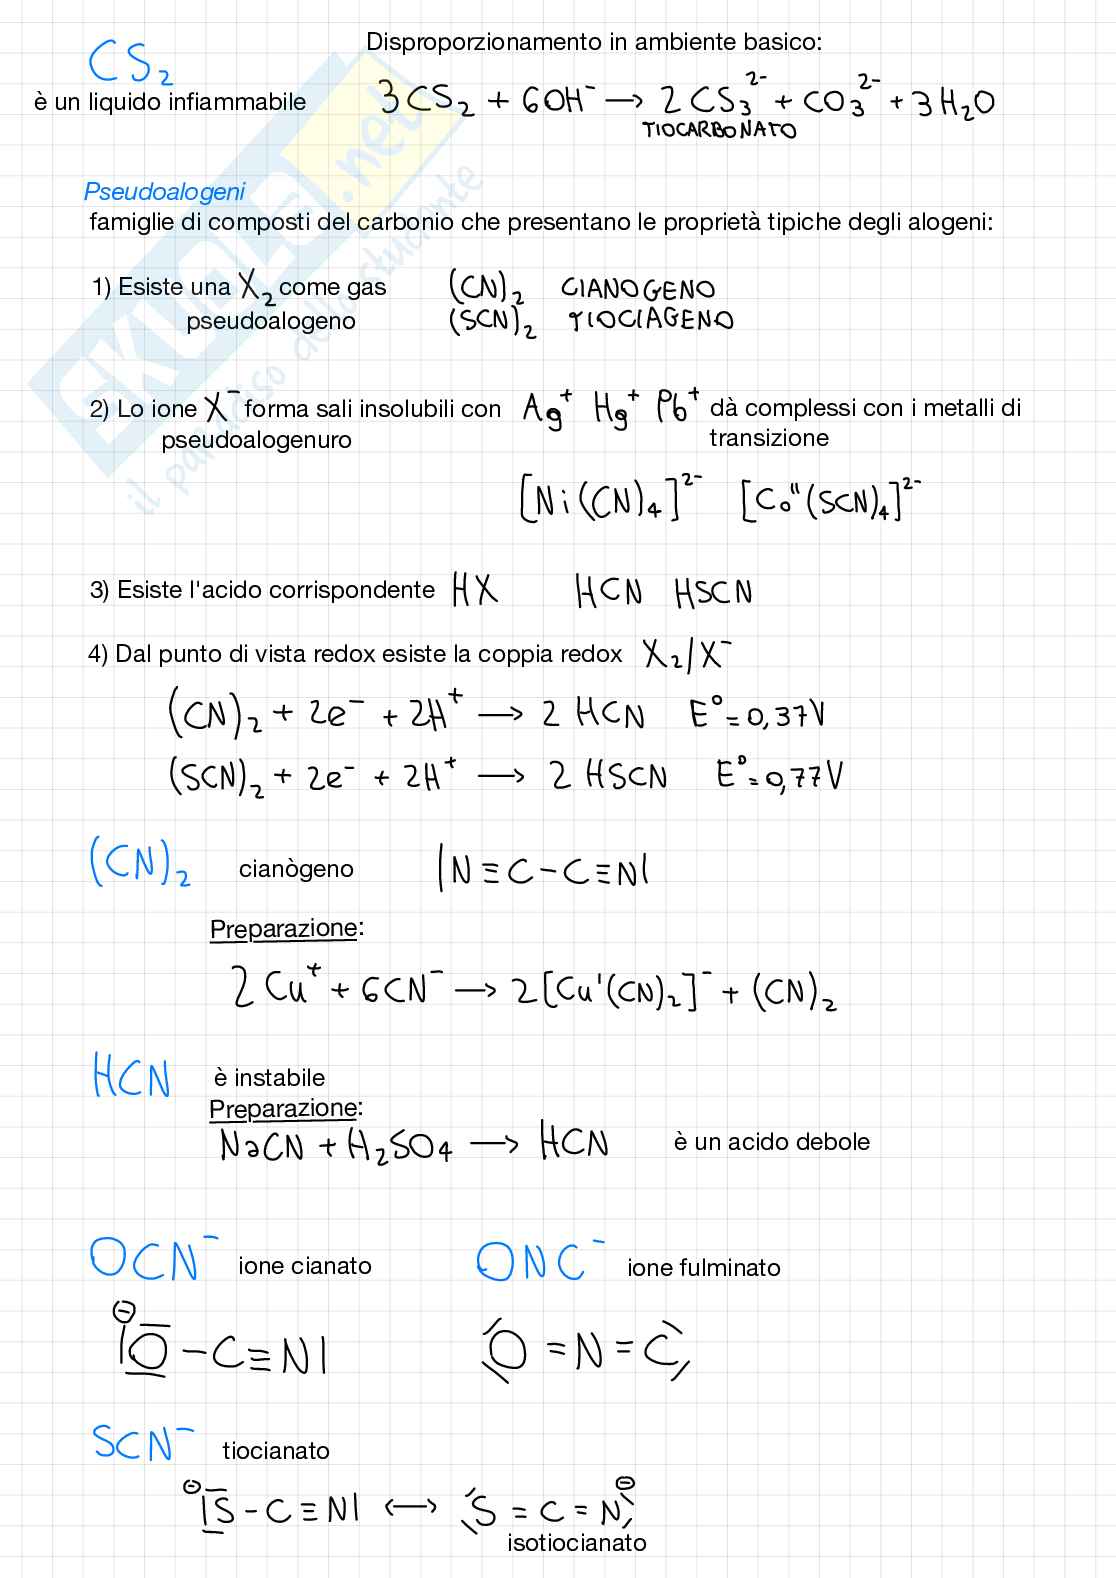 CS₂
è un liquido infiammabile
Disproporzionamento in ambiente basico:
3CS₂ + 6OH⁻ → 2CS₃²⁻ + CO₃²⁻ + 3H₂O
TIOCARBONATO
Pseudoalogeni
famiglie di composti del carbonio che presentano le proprietà tipiche degli alogeni:
1) Esiste una X₂ come gas (CN)₂ CIANOGENO
pseudoalogeno (SCN)₂ TIOCIAGENO
2) Lo ione X⁻ forma sali insolubili con Ag⁺ Hg⁺ Pb⁺ dà complessi con i metalli di
pseudoalogenuro transizione
[Ni(CN)₄]²⁻ [Co"(SCN)₄]²⁻
3) Esiste l'acido corrispondente HX HCN HSCN
4) Dal punto di vista redox esiste la coppia redox X₂/X⁻
(CN)₂ + 2e⁻ + 2H⁺ → 2 HCN E°=0,37V
(SCN)₂ + 2e⁻ + 2H⁺ → 2 HSCN E°=0,77V
(CN)₂ cianògeno |N≡C-C≡N|
Preparazione:
2Cu⁺ + 6CN⁻ → 2[Cu'(CN)₂]⁻ + (CN)₂
HCN è instabile
Preparazione:
NaCN + H₂SO₄ → HCN è un acido debole
OCN⁻ ione cianato ONC⁻ ione fulminato
⊖
|O-C≡N| O=N=C
SCN⁻ tiocianato
⊖ ⊖
|S-C≡N| ↔ S=C=N
isotiocianato
SKUOLA.net
il paradiso dello studente